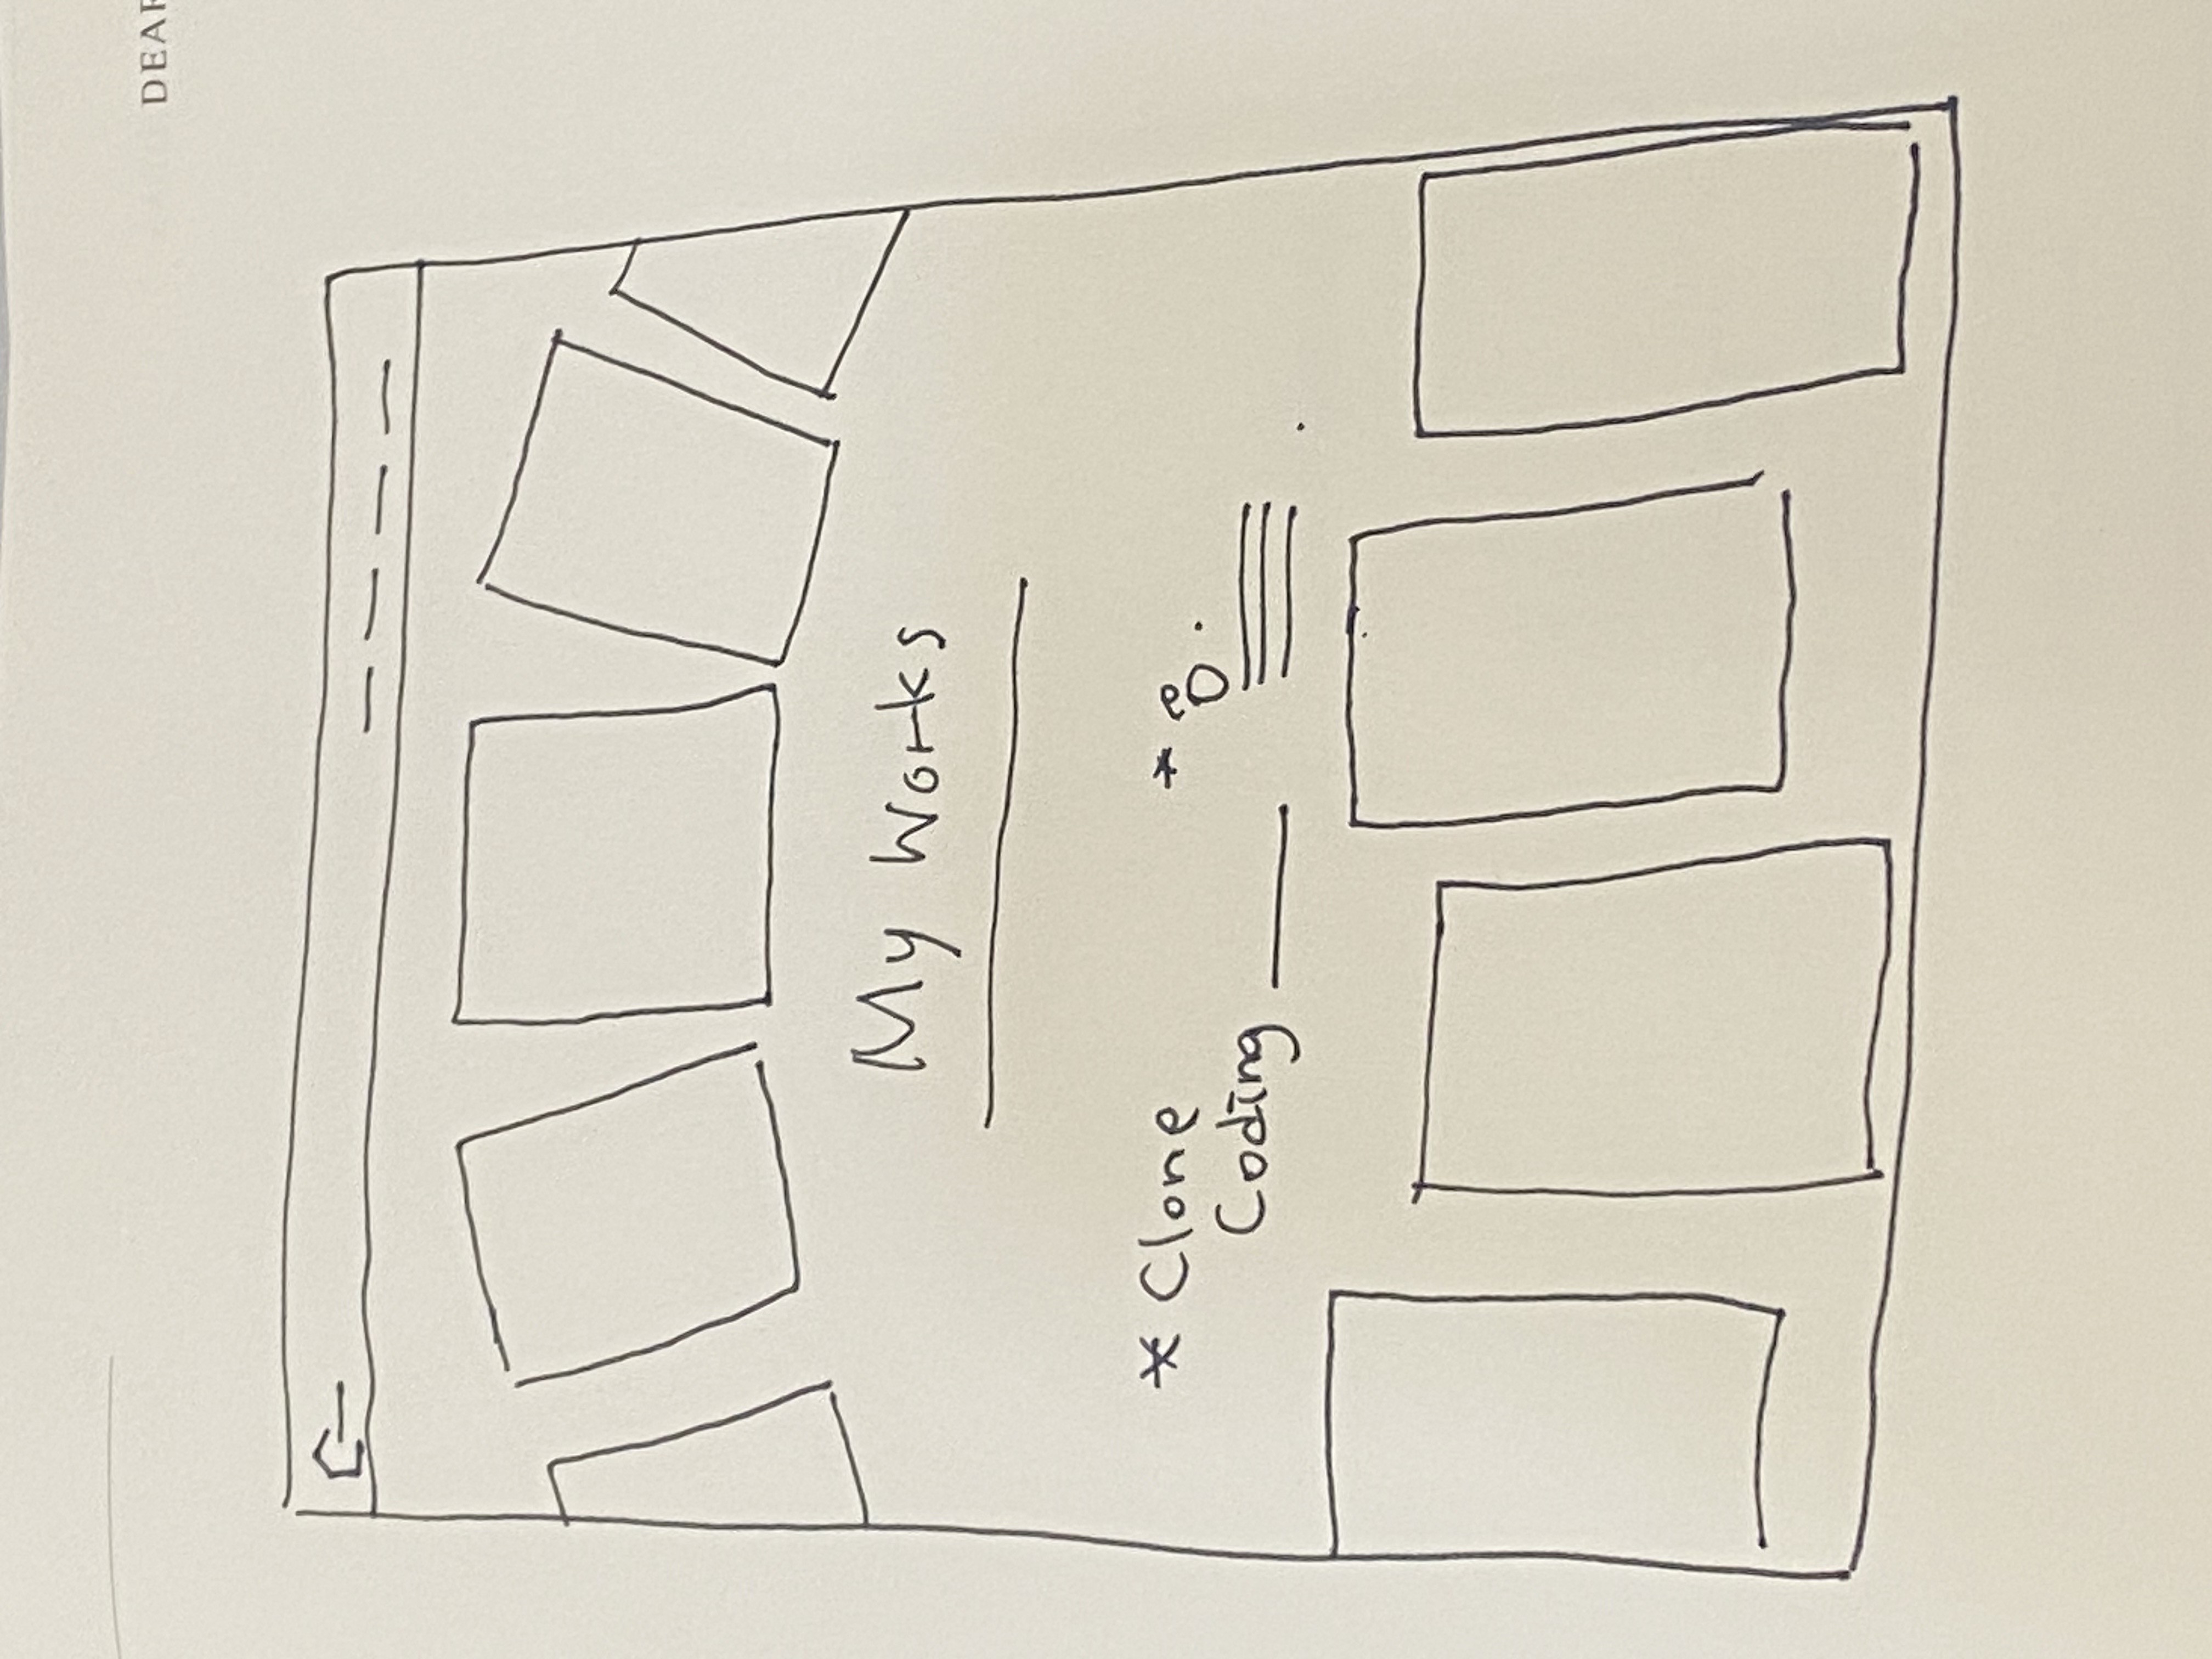 DEAR
My Works
* Clone
Coding
*